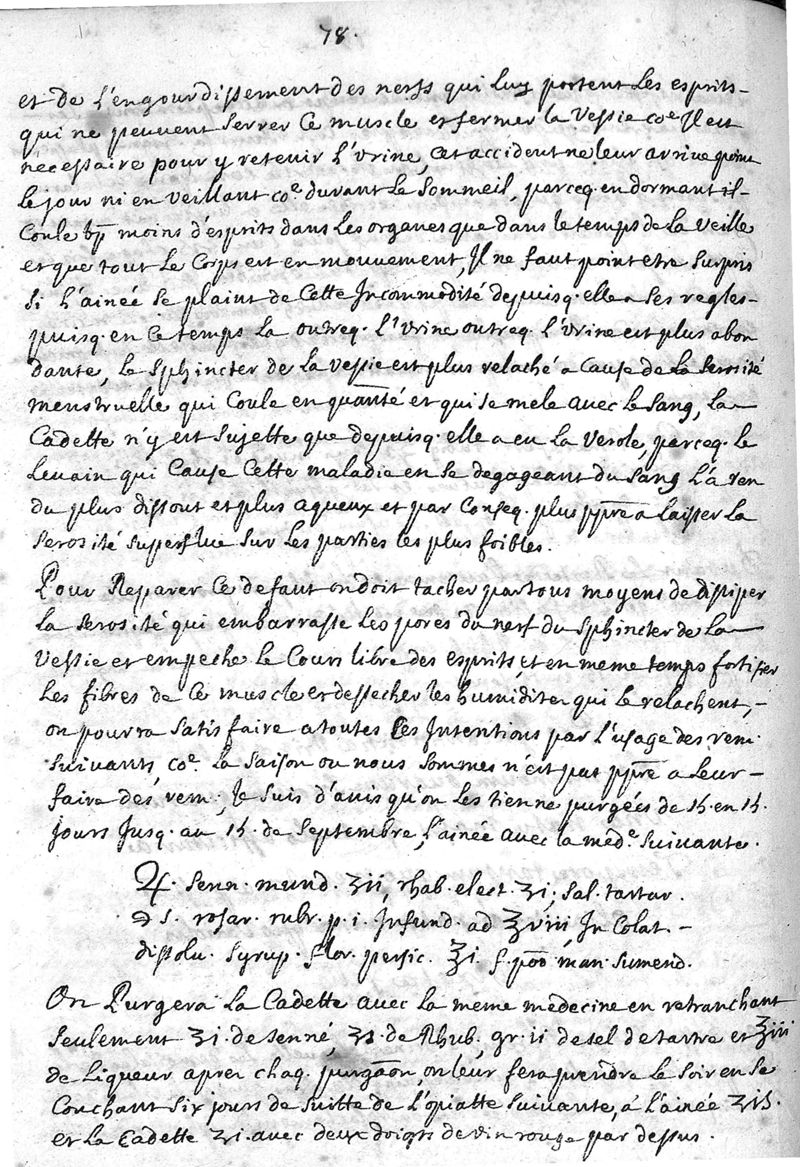 78.
et de l'engourdissement des nerfs qui luy portent les esprits
qui ne peuvent serrer ce muscle et fermer la Vessie coe. Il est
necessaire pour y retenir l'Urine, cet accident ne leur arrive point
le jour ni en veillant coe. durant le sommeil, parceq. en dormant il
Coule bp moins d'esprits dans les organes que dans le temps de la Veille
et que tout le Corps est en mouvement, Il ne faut point etre surpris
si l'ainée se plaint de Cette Incommodité depuisq. elle a ses regles
puisq. en ce temps la outreq. l'Urine outreq. l'Urine est plus abon
dante, le Sphincter de la Vessie est plus relaché a Cause de la serosité
menstruelle qui Coule en quanté et qui se mele avec le sang, la
Cadette n'y est sujette que depuisq. elle a eu la Verole, parceq. le
levain qui Cause Cette maladie en se degageant du sang l'a ren
du plus dissout et plus aqueux et par Conseq. plus ppre a laisser la
serosité superflue sur les parties les plus foibles.
Pour Reparer ce defaut on doit tacher par tous moyens de dissiper
la serosité qui embarrasse les pores du nerf du Sphincter de la
Vessie et empeche le Cours libre des esprits, et en meme temps fortifier
les fibres de ce muscle et dessecher les humiditez qui le relachent,
on pourra satisfaire a toutes Ces Intentions par l'usage des rem.
suivants, coe. la saison ou nous sommes n'est pas ppre a leur
faire des rem; Je suis d'avis qu'on les tienne purgées de 15. en 15.
jours Jusq. au 15. de Septembre, l'ainée avec la mede. suivante.
♃. senn. mund. ʒii, rhab. elect. ʒi; sal. tartar.
℈ s. rosar. rubr. p. i. Infund. ad ℥viii, In Colat.
dissolu. Syrup. flor. persic. ℥i. f. poõ man. sumend.
On Purgera la Cadette avec la meme medecine en retranchant
seulement ʒi. de senné, ʒs. de Rhub. gr. ii de sel de tartre et ℥iii
de Liqueur apres chaq. purgaon, on leur fera prendre le soir en se
Couchant six jours de suitte de l'opiatte suivante, à l'ainée ʒis.
et la Cadette ʒi. avec deux doigts de vin rouge par dessus.